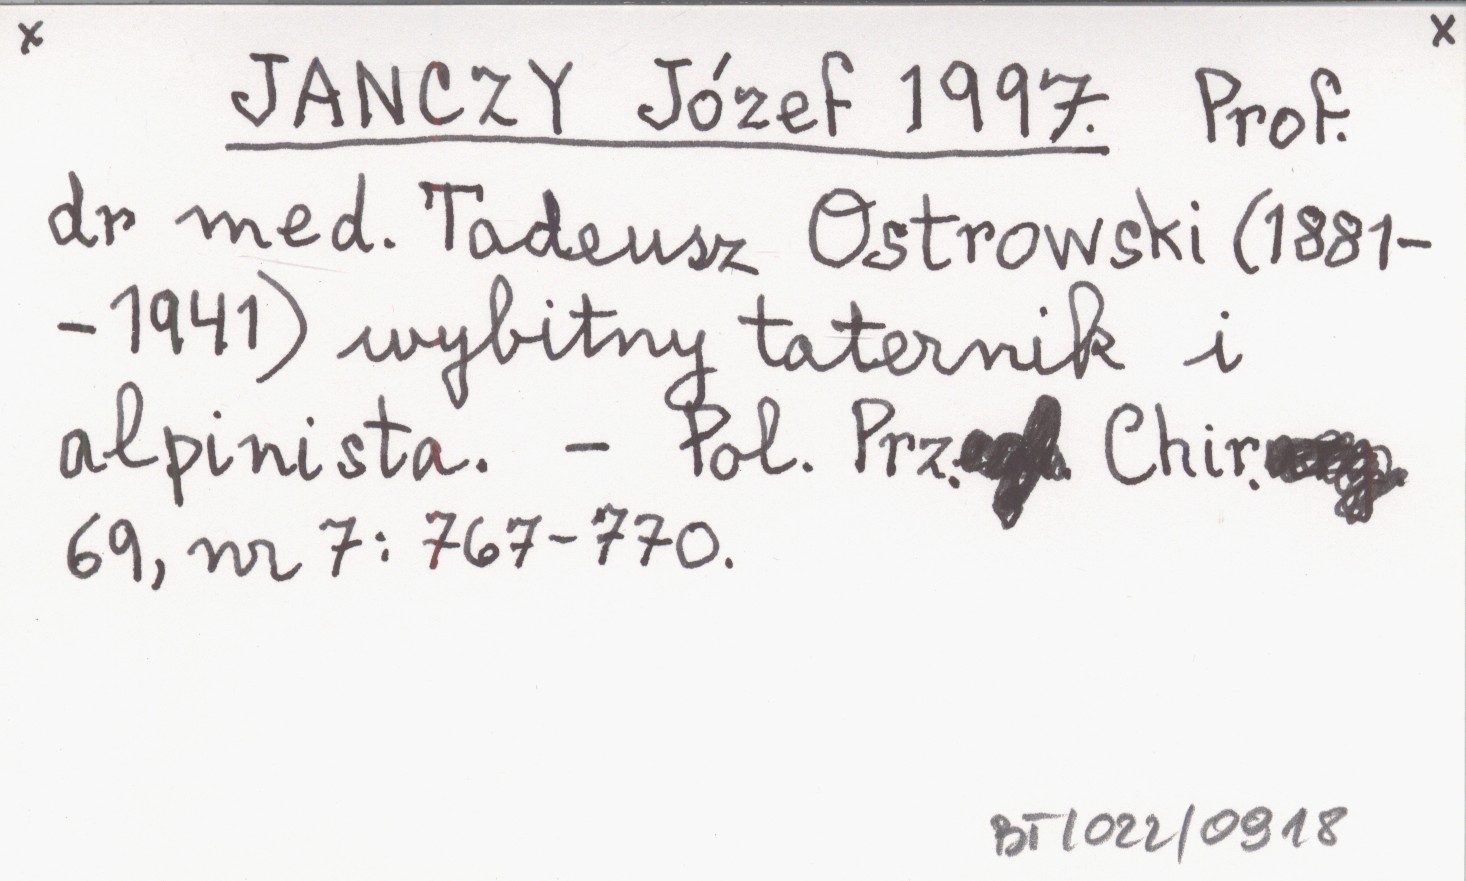 x x
JANCZY Józef 1997. Prof.
dr med. Tadeusz Ostrowski (1881-
-1941) wybitny taternik i
alpinista. - Pol. Prz. Chir.
69, nr 7: 767-770.
BT/022/0918